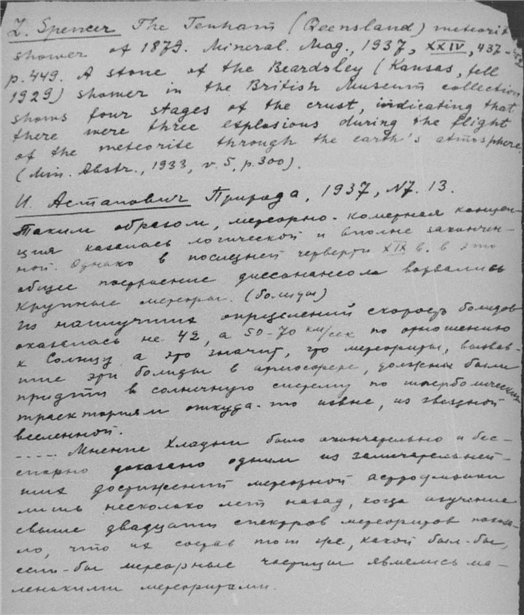 L. Spencer The Tenham (Qeensland) meteorit
shower of 1879. Mineral. Mag., 1937, XXIV, 437-
p. 449. A stone of the Beardsley (Kansas, fell
1929) shower in the British Museum collection
shows four stages of the crust, indicating that
there were three explosions during the flight
of the meteorite through the earth's atmosphere
(Min. Abstr., 1933, v. 5, p. 300).
И. Астапович Природа, 1937, N7. 13.
Таким образом, метеорно-кометная концеп-
ция казалась логической и вполне закончен-
ной. Однако в последней четверти XIX в. в это
общее построение диссонансом ворвались
крупные метеоры. (болиды)
Из наилучших определений скорость болидов
оказалась не 42, а 50-70 км/сек по отношению
к Солнцу а это значит, что метеориты, вызвав-
шие эти болиды в атмосфере, должны были
придти в солнечную систему по гиперболическим
траекториям откуда-то извне, из звездной
вселенной.
..... Мнение Хладни было окончательно и бес-
спорно доказано одним из замечательней-
ших достижений метеорной астрофизики
лишь несколько лет назад, когда изучение
свыше двадцати спектров метеоритов показа-
ло, что их состав тот же, какой был-бы,
если-бы метеорные частицы являлись ма-
ленькими метеоритами.